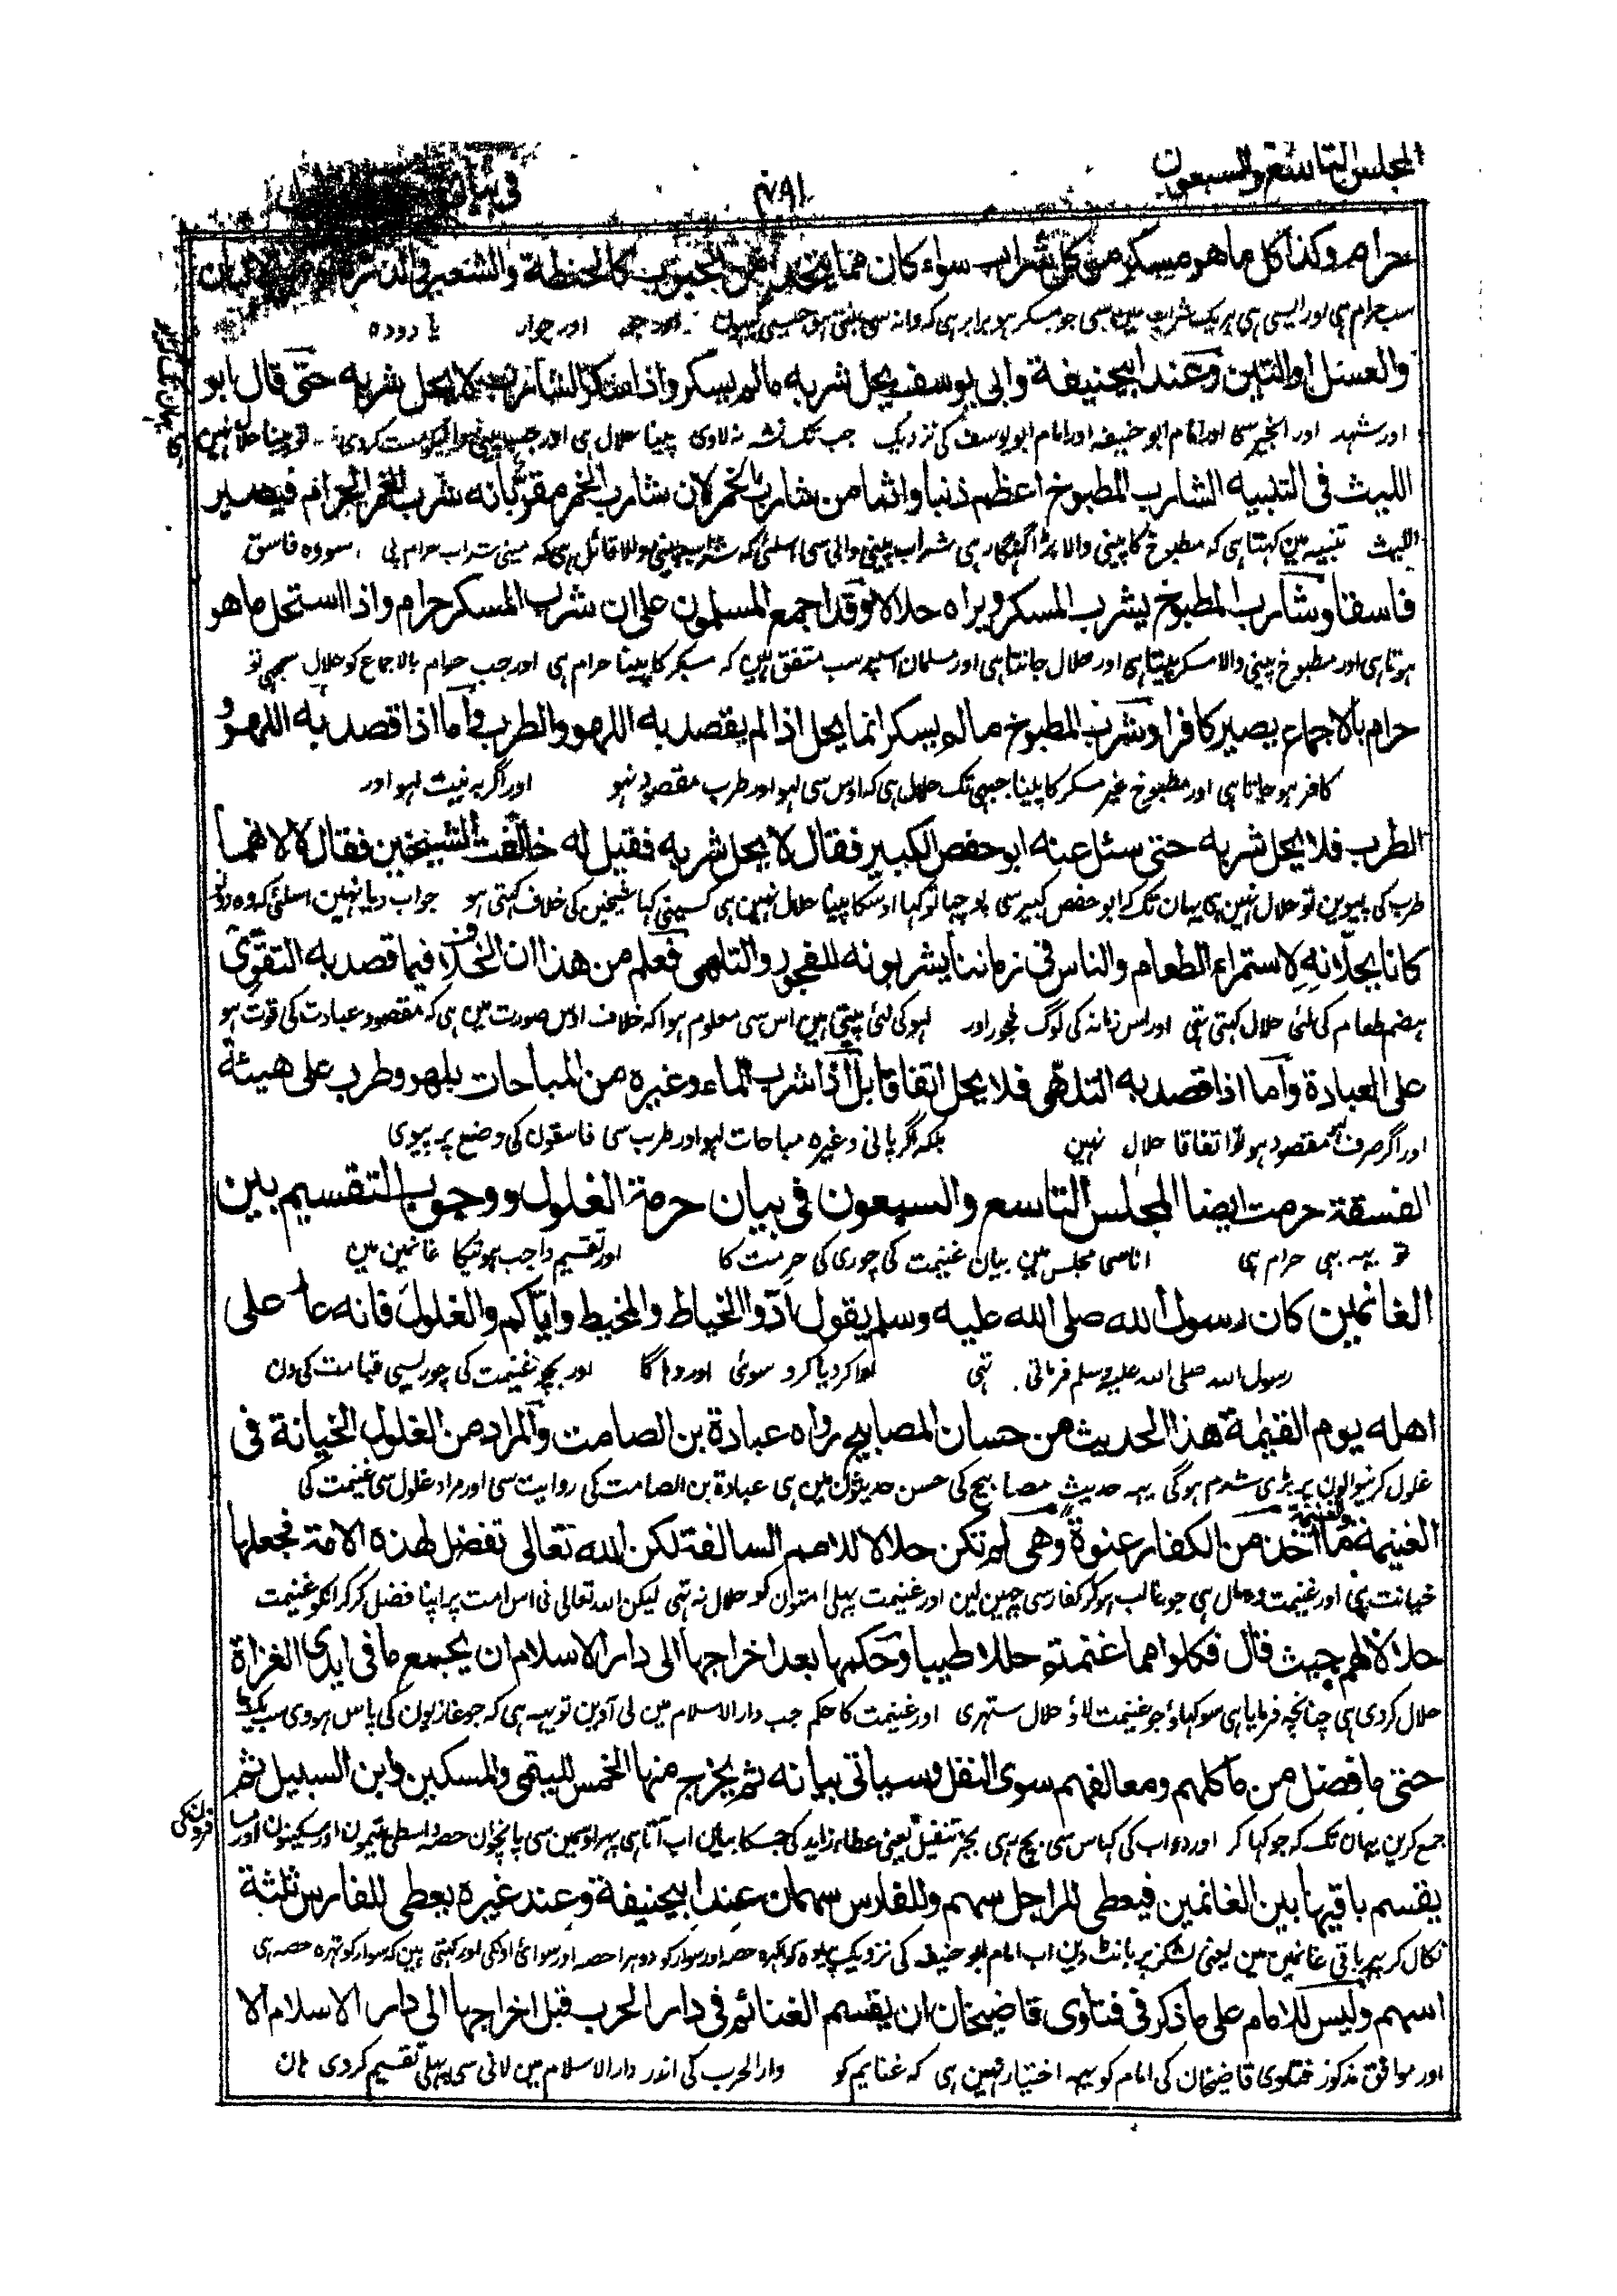 المجلس التاسع والسبعون
٤٨١
فی بیان
حرام وكذا كل ما هو مسكر من كل شراب سواء كان مما يتخذ من الحبوب كالحنطة والشعير والذرة
سب حرام ہی اور ایسی ہی ہر یک شراب مین سی جو مسکر ہو برابر ہی کہ دانہ سی بنتی ہو جیسی گیہون اور جو اور جوار یا دودہ
والعسل او التين وعند ابيحنيفة وابي يوسف يحل شربه مالم يسكر واذا اسكر الشارب لا يحل شربه حتى قال ابو
اور شہد اور انجیر سی اور امام ابو حنیفہ اور امام ابو یوسف کی نزدیک جب تک نشہ نہ لاوی پینا حلال ہی اور جب پینی والیکو مست کردی تو پینا حلال نہین
الليث في التنبيه الشارب المطبوخ اعظم ذنبا واثما من شارب الخمر لان شارب الخمر مقر بانه شرب الخمر الحرام فيصير
اللیث تنبیہ مین کہتا ہی کہ مطبوخ کا پینی والا بڑا گنہگار ہی شراب پینی والی سی اسلئی کہ شراب پینی والا قائل ہی کہ مینی شراب حرام پی سو وہ فاسق
فاسقا وشارب المطبوخ يشرب المسكر ويراه حلالا وقد اجمع المسلمون على ان شرب المسكر حرام واذا استحل ما هو
ہوتا ہی اور مطبوخ پینی والا مسکر پیتا ہی اور حلال جانتا ہی اور مسلمان اسپر سب متفق ہین کہ مسکر کا پینا حرام ہی اور جب حرام بالاجماع کو حلال سمجہی تو
حرام بالاجماع يصير كافرا وشرب المطبوخ مالم يسكر انما يحل اذا لم يقصد به اللهو والطرب واما اذا قصد به اللهو و
کافر ہو جاتا ہی اور مطبوخ غیر مسکر کا پینا جبہی تک حلال ہی کہ اوس سی لہو اور طرب مقصود نہو اور اگر بہ نیت لہو اور
الطرب فلا يحل شربه حتى سئل عنه ابو حفص الكبير فقال لا يحل شربه فقيل له خالفت الشيخين فقال لا لانهما
طرب کی پیوین تو حلال نہین ہی یہان تک کہ ابو حفص کبیر سی پوچہا تو کہا اوسکا پینا حلال نہین ہی کسینی کہا شیخین کی خلاف کہتی ہو جواب دیا نہین اسلئی کہ وہ دونو
كانا يحلانه لاستمراء الطعام والناس في زماننا يشربونه للفجور والتلهي فعلم من هذا ان الخلاف فيما قصد به التقوى
ہضم طعام کی لئی حلال کہتی تہی اور اس زمانہ کی لوگ فجور اور لہو کی لئی پیتی ہین اس سی معلوم ہوا کہ خلاف اوس صورت مین ہی کہ مقصود عبادت کی قوت ہو
على العبادة واما اذا قصد به التلهي فلا يحل اتفاقا بل اذا شرب الماء وغيره من المباحات بلهو وطرب على هيئة
اور اگر صرف لہو مقصود ہو تو اتفاقا حلال نہین بلکہ اگر پانی وغیرہ مباحات لہو اور طرب سی فاسقون کی وضع پر پیوی
الفسقة حرمت ايضا المجلس التاسع والسبعون في بيان حرمة الغلول ووجوب التقسيم بين
تو یہہ بہی حرام ہی اناسی مجلس مین بیان غنیمت کی چوری کی حرمت کا اور تقسیم واجب ہونیکا غانمین مین
الغانمين كان رسول الله صلى الله عليه وسلم يقول ادوا الخياط والمخيط واياكم والغلول فانه عار على
رسول اللہ صلی اللہ علیہ وسلم فرماتی تہی ادا کردیا کرو سوئی اور دہاگا اور بچو غنیمت کی چوری سی قیامت کی دن
اهله يوم القيمة هذا الحديث من حسان المصابيح رواه عبادة بن الصامت والمراد من الغلول الخيانة في
غلول کرنیوالون پر بڑی شرم ہوگی یہہ حدیث مصابیح کی حسن حدیثون مین ہی عبادة بن الصامت کی روایت سی اور مراد غلول سی غنیمت کی
الغنيمة والغنيمة ما اخذ من الكفار عنوة وهي لم تكن حلالا للامم السالفة لكن الله تعالى تفضل لهذه الامة فجعلها
خیانت ہی اور غنیمت وہ مال ہی جو غالب ہوکر کفار سی چہین لین اور غنیمت پہلی امتون کو حلال نہ تہی لیکن اللہ تعالی نی اس امت پر اپنا فضل کر کر انکو غنیمت
حلالا لهم حيث قال فكلوا مما غنمتم حللا طيبا وحكمها بعد اخراجها الى دار الاسلام ان يجمع ما في ايدي الغزاة
حلال کردی ہی چنانچہ فرمایا ہی سو کہاؤ جو غنیمت لاؤ حلال ستہری اور غنیمت کا حکم جب دار الاسلام مین لی آوین تو یہہ ہی کہ جو غازیون کی پاس ہووی سب یکجا
حتى ما فضل من ماكلهم ومعالفهم سوى النفل وسياتي بيانه ثم يخرج منها الخمس لليتمى والمسكين وابن السبيل ثم
جمع کرین یہان تک کہ جو کہا کر اور دواب کی گہاس سی بچ رہی بجز تنفیل یعنی عطاء زاید کی جسکا بیان اب آتا ہی پہر اوسمین سی پانچوان حصہ واسطی یتیمون اور مسکینون اور
يقسم باقيها بين الغانمين فيعطى للراجل سهم وللفارس سهمان عند ابيحنيفة وعند غيره يعطى للفارس ثلثة
نکال کر پہر باقی غانمین مین یعنی لشکر پر بانٹ دین اب امام ابو حنیفہ کی نزدیک پیادہ کو اکہرہ حصہ اور سوار کو دوہرا حصہ اور سوائ اونکی اور کہتی ہین کہ سوار کو تہرہ حصہ ہی
اسهم وليس للامام على ما ذكر في فتاوى قاضيخان ان يقسم الغنائم في دار الحرب قبل اخراجها الى دار الاسلام الا
اور موافق مذکور فتاوی قاضیخان کی امام کو یہہ اختیار نہین ہی کہ غنایم کو دار الحرب کی اندر دار الاسلام مین لانی سی پہلی تقسیم کردی ہان